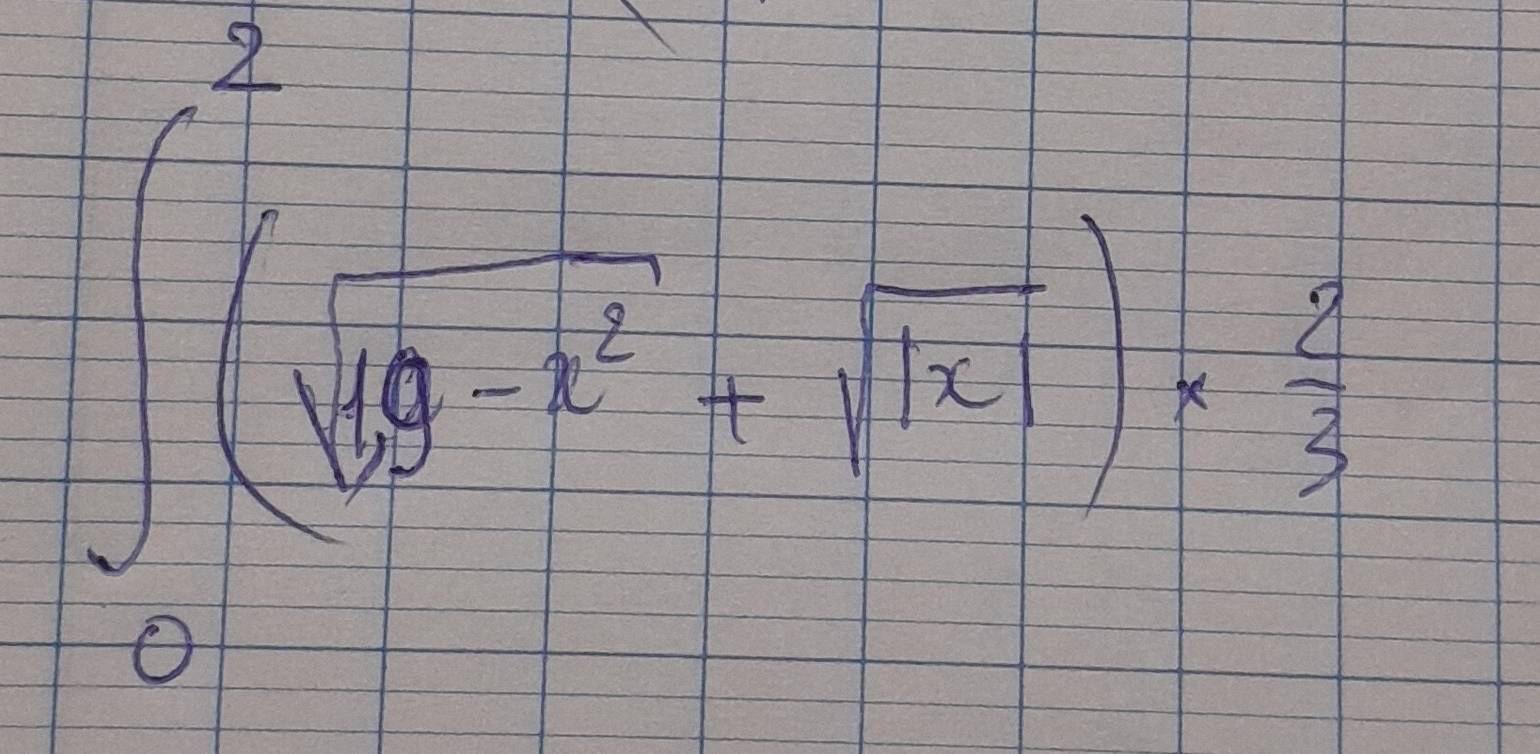 ∫₀² (√(1,9 - x²) + √|x|) × 2/3